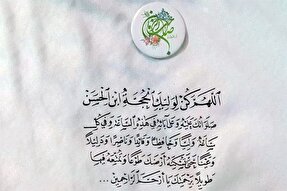 اَللّهُمَّ كُنْ لِوَلِيِّكَ الْحُجَّةِ ابْنِ الْحَسَنِ
صَلَواتُكَ عَلَيْهِ وَعَلى آبائِهِ في هذِهِ السّاعَةِ وَفي كُلِّ
ساعَةٍ وَلِيّاً وَحافِظاً وَقائِداً وَناصِراً وَدَليلاً
وَعَيْناً حَتّى تُسْكِنَهُ أَرْضَكَ طَوْعاً وَتُمَتِّعَهُ فيها
طَويلاً بِرَحْمَتِكَ يا أَرْحَمَ الرّاحِمينَ ...